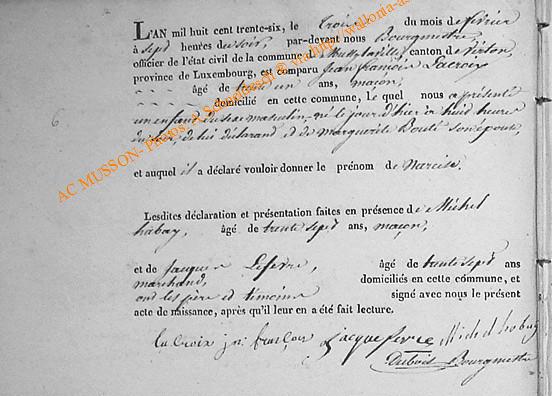 L'AN mil huit cent trente-six, le trois du mois de février
à sept heures du soir, par-devant nous Bourgmestre,
officier de l'état civil de la commune de Mussy-la-ville canton de Virton,
province de Luxembourg, est comparu Jean françois Lacroix
âgé de trente un ans, maçon,
domicilié en cette commune, le quel nous a présenté
un enfant du sexe masculin, né le jour d'hier à huit heures
du soir, de lui déclarant et de marguerite Bouté son épouse,
et auquel il a déclaré vouloir donner le prénom de Narcise.
Lesdites déclaration et présentation faites en présence de Michel
habay, âgé de trente sept ans, maçon,
et de Jacques Lefevre, âgé de trente sept ans
marchand, domiciliés en cette commune, et
ont les père et témoins signé avec nous le présent
acte de naissance, après qu'il leur en a été fait lecture.
la Croix Michel habay
Dubois Bourgmestre
AC MUSSON- Photos
via http://wallonia-as